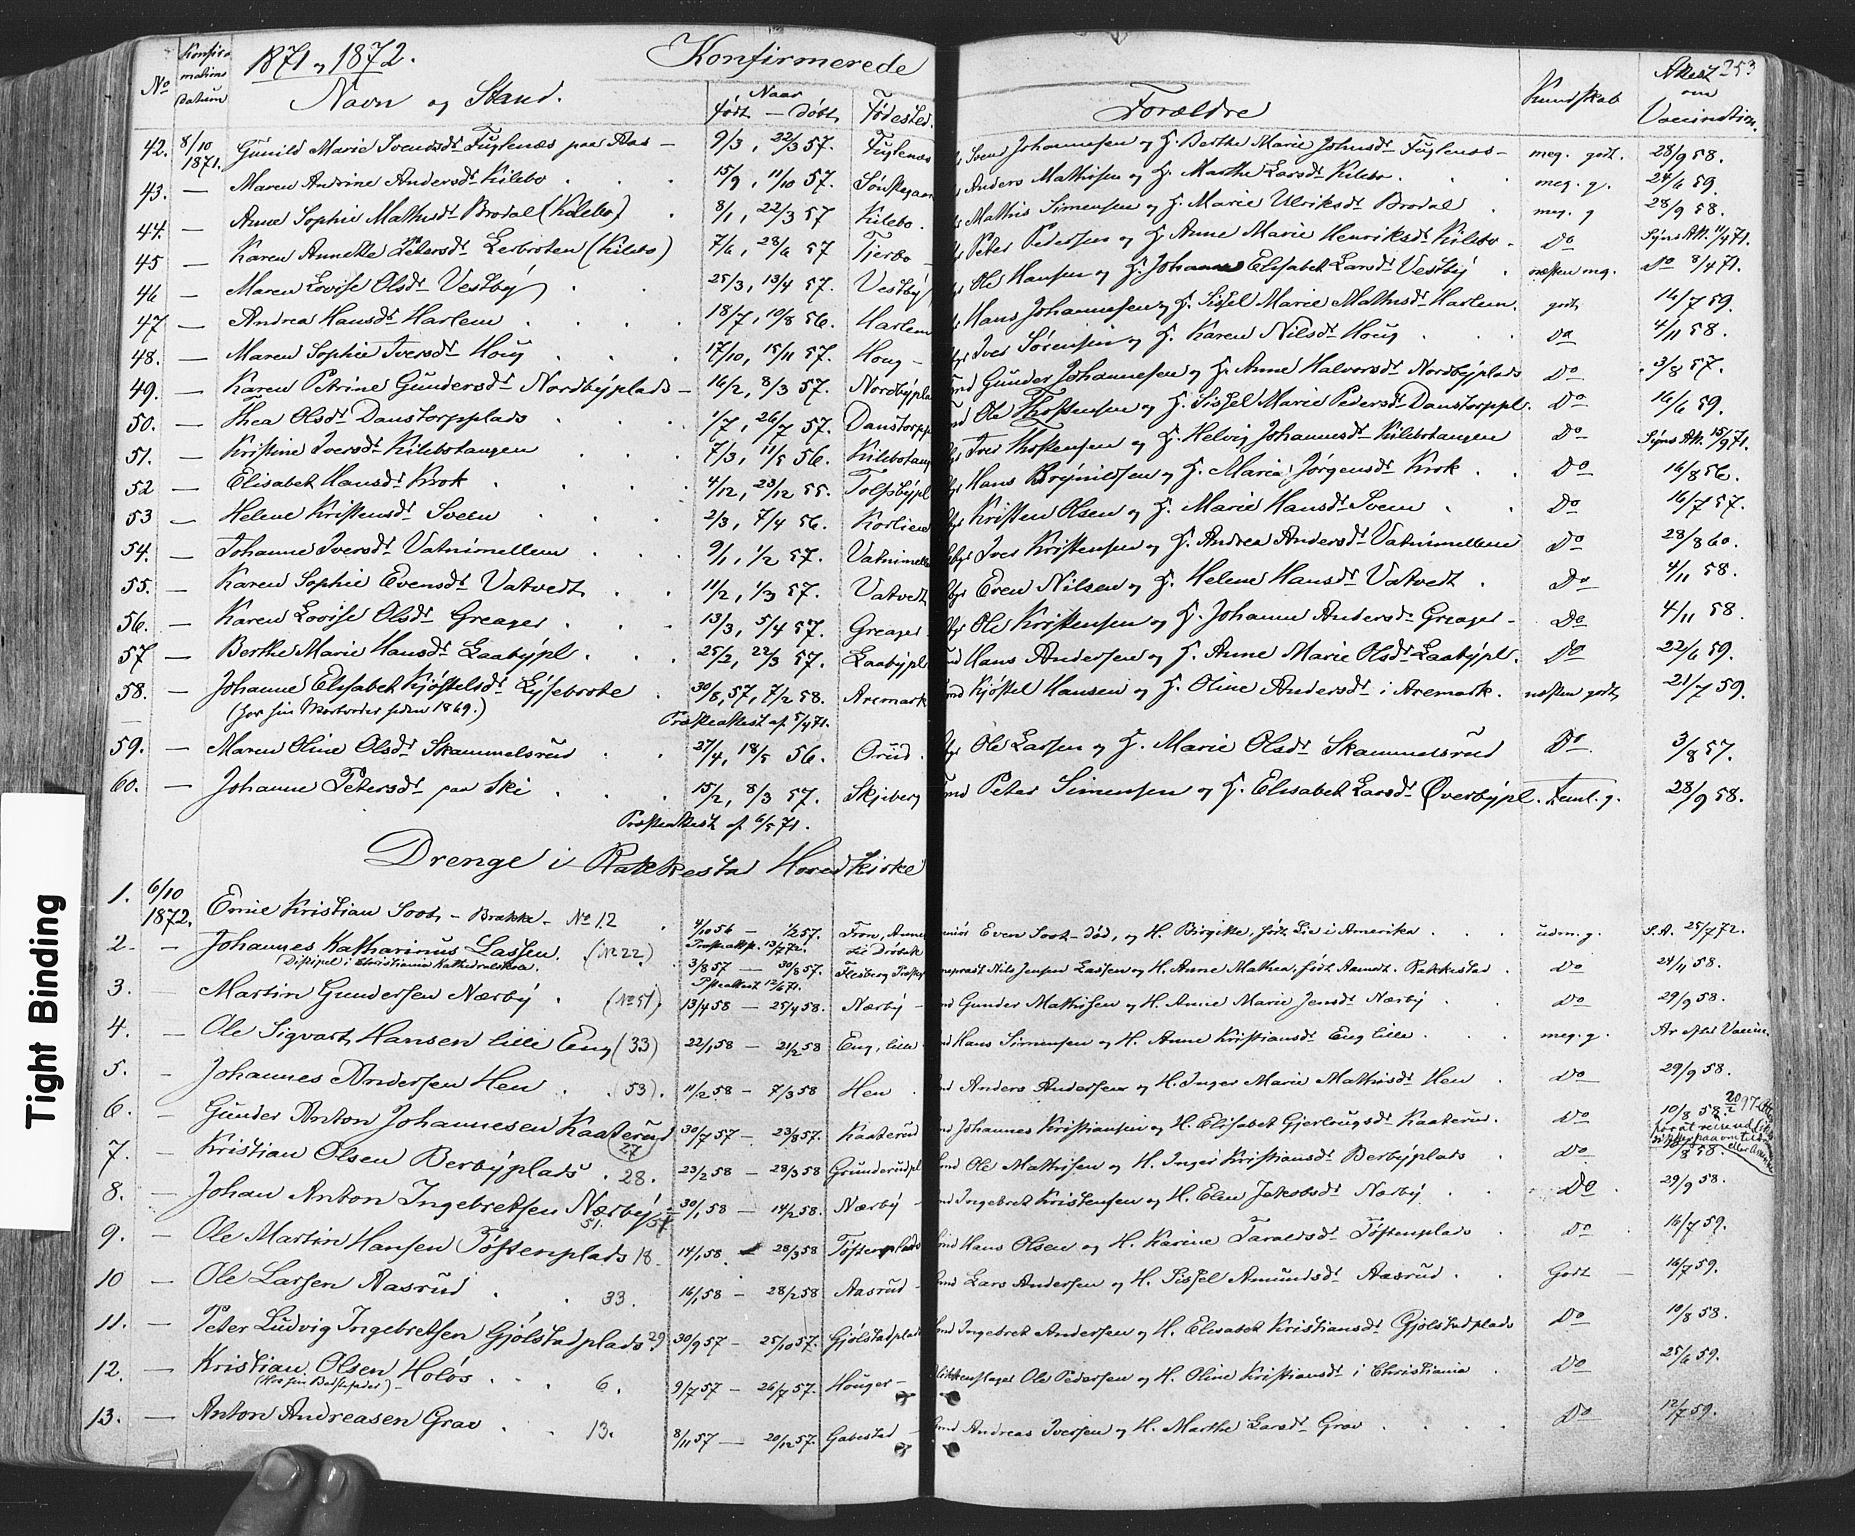 1871 og 1872. Konfirmerede 253
No Konfirmations Datum Navn og Stand. Naar født — Døbt Fødested. Forældre Kundskab Attest om Vaccination.
42. 8/10 1871. Gunild Marie Svendsdt Fuglenæs paa Aas — 9/3, 22/3 57. Fuglenæs Svend Johannesen og H. Berthe Marie Johnsdt Fuglenæs — meg. godt. 28/9 58.
43. — Maren Andrine Andersdt Kilebo 15/9, 11/10 57. Anders Mathisen og H. Marthe Larsdt Kilebo. meg. g. 24/6 59.
44. — Anne Sophie Mathisdt Brodal (Kilebo) 8/1, 22/3 57 Kilebo. Mathis Simensen og H. Marie Ulriksdt Brodal meg. g 28/9 58.
45 — Karen Annette Petersdt Lerbroten (Kilebo) 7/6, 28/6 57 Tjerbo — Peter Petersen og H. Anne Marie Henriksdt Kilebo. Do Syns Att. 11/4 71.
46 — Maren Lovise Olsdt Vestby 25/3, 13/4 57. Vestby Ole Hansen og H. Johanne Elisabet Larsdt Vestby næsten mg. Do 8/4 71.
47 — Andrea Hansdt Harlem 18/7, 10/8 56. Harlem Hans Johannesen og H. Sissel Marie Mathisdt Harlem. godt 14/7 59.
48. — Maren Sophie Iversdt Houg 17/10, 15/11 57. Houg — Iver Sørensen og H. Karen Nilsdt Houg Do 4/11 58.
49. — Karen Petrine Gundersdt Nordbyplads — 16/2, 8/3 57. Nordbypla Gunder Johannesen og H. Anne Halvorsdt Nordbyplads Do 3/8 57.
50. — Thea Olsdt Danstorpplads 1/7, 26/7 57. Danstorpp Ole Thostensen og H. Sissel Marie Pedersdt Danstorppl. Do 16/6 59.
51. — Kristine Iversdt Kilebotangen 7/3, 11/5 56. Kilebotang Iver Thostensen og H. Helvig Johannesdt Kilebotangen Do Syns Att. 15/9 71.
52 — Elisabet Hansdt Krok 4/12, 23/12 55. Tolfsbypl Hans Brynildsen og H. Maria Jørgensdt Krok. Do 16/8 56.
53 — Helene Kristensdt Sveen 2/3, 7/4 56. Kristen Olsen og H. Marie Hansdt Sveen Do 16/7 57.
54. — Johanne Iversdt Vatnimellem 9/1, 1/2 57. Vatnimell Iver Kristensen og H. Andrea Andersdt Vatnimellem Do 28/8 60.
55. — Karen Sophie Evensdt Vatvedt 11/2, 1/3 57. Vatvedt Even Nilsen og H. Helene Hansdt Vatvedt. Do 4/11 58.
56. — Karen Lovise Olsdt Greager 13/3, 5/4 57. Greager Ole Kristensen og H. Johanne Andersdt Greager — Do 4/11 58
57 — Berthe Marie Hansdt Laabypl. 25/2, 22/3 57. Laabypl Hans Andersen og H. Anne Marie Olsdt Laabypl. Do 22/6 59.
58. — Johanne Elisabet Kjøstelsdt Lysebrote 30/8 57, 7/2 58. Aremark Kjøstel Hansen og H. Oline Andersdt i Aremark. næsten godt 21/7 59.
(hos sin Morbroder siden 1869.) Præsteattest af 5/4 71.
59. — Maren Oline Olsdt Skammelsrud 27/4, 18/5 56. Orud. Ole Larsen og H. Marie Olsdt Skammelsrud Do. 3/8 57.
60. — Johanne Petersdt paa Ski 15/2, 8/3 57. Skjeberg Peter Simensen og H. Elisabet Larsdt Øverbypl. Teml. g. 28/9 58.
Præsteattest af 6/5 71.
Drenge i Rakkestad Hovedkirke
1. 6/10 1872. Kristian Soot — Brække — No 12 4/10 56 — 1/2 57. Even Soot død, og H. Birgitte, født Lie i Amerika udm. g. S.A. 25/7 72.
2. — Johannes Katharinus Lassen. (No 22) Præsteatt. 13/7 72. 3/8 57 — 30/8 57. Nils Jensen Lassen og H. Anne Mathea, født Aamdt. Rakkestad Do 24/11 58.
Discipel i Christiania Kathedralskole.
3. — Martin Gundersen Nærby (No 51) 13/4 58 — 25/4 58. Nærby — Gunder Mathisen og H. Anne Marie Jensdt Nærby Do 29/9 58.
4. — Ole Sigvart Hansen lille Eng (33) 22/1 58 — 21/2 58 Eng, lille Hans Simensen og H. Anne Kristiansdt Eng lille meg. g.
5. — Johannes Andersen Hen (53). 11/2 58 — 7/3 58 Hen Anders Andersen og H. Inger Marie Mathisdt Hen Do 29/9 58.
6. — Gunder Anton Johannesen Kaaterud 27 30/7 57 — 23/8 57. Kaaterud Johannes Kristiansen og H. Elisabet Gjerlaugsdt Kaaterud. Do 10/8 58
7. — Kristian Olsen Berbyplads. 28. 23/2 58 — 28/3 58 Grunderudpl Ole Mathisen og H. Inger Kristiansdt Berbyplads Do /8 58.
8. — Johan Anton Ingebretsen Nærby 51. 30/1 58 — 14/2 58. Nærby Ingebret Kristensen og H. Elen Jakobsdt Nærby Do 29/9 58.
9. — Ole Martin Hansen Tøstenplads 18. 14/1 58. — 28/3 58 Tøstenplads Hans Olsen og H. Karine Taraldsdt Tøstenplads Do 16/7 59.
10 — Ole Larsen Aasrud 33. 16/1 58 — 28/2 58 Aasrud Lars Andersen og H. Sissel Amundsdt Aasrud. Godt — 16/7 59.
11. — Peter Ludvig Ingebretsen Gjølstadplads 29) 30/9 57 — 25/10 57. Gjølstadplads Ingebret Andersen og H. Elisabet Kristiansdt Gjølstadplads Do 10/8 58.
12. — Kristian Olsen Holøs 6. 9/7 57 — 26/7 57. Houger — Blikkenslager Ole Pedersen og H. Oline Kristiansdt i Christiania Do 25/6 59.
(Hos sin Bedstefader) —
13. — Anton Andreasen Grav 13. 8/11 57 — 20/12 57. Gabestad — Andreas Iversen og H. Marthe Larsdt Grav Do 12/7 59.
Tight Binding